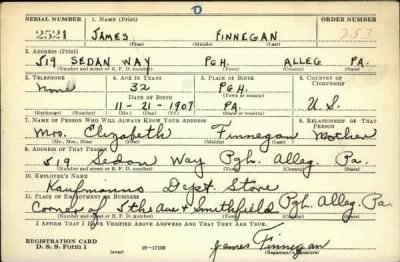 O
SERIAL NUMBER 1. NAME (Print) ORDER NUMBER
2521 JAMES FINNEGAN 253
(First) (Middle) (Last)
2. ADDRESS (Print)
519 SEDAN WAY PGH. ALLEG PA.
(Number and street or R. F. D. number) (Town) (County) (State)
3. TELEPHONE 4. AGE IN YEARS 5. PLACE OF BIRTH 6. COUNTRY OF CITIZENSHIP
None 32 PGH.
DATE OF BIRTH (Town or county)
11-21-1907 PA. U.S.
(Exchange) (Number) (Mo.) (Day) (Yr.) (State or country)
7. NAME OF PERSON WHO WILL ALWAYS KNOW YOUR ADDRESS 8. RELATIONSHIP OF THAT PERSON
Mrs. Elizabeth Finnegan Mother
(Mr., Mrs., Miss) (First) (Middle) (Last)
9. ADDRESS OF THAT PERSON
519 Sedan Way Pgh. Alleg. Pa.
(Number and street or R. F. D. number) (Town) (County) (State)
10. EMPLOYER'S NAME
Kaufmanns Dept. Store
11. PLACE OF EMPLOYMENT OR BUSINESS
Corner of 5th Ave & Smithfield Pgh. Alleg. Pa
(Number and street or R. F. D. number) (Town) (County) (State)
I AFFIRM THAT I HAVE VERIFIED ABOVE ANSWERS AND THAT THEY ARE TRUE.
REGISTRATION CARD
D. S. S. Form 1 (over) 16-17105 James Finnegan
(Registrant's signature)